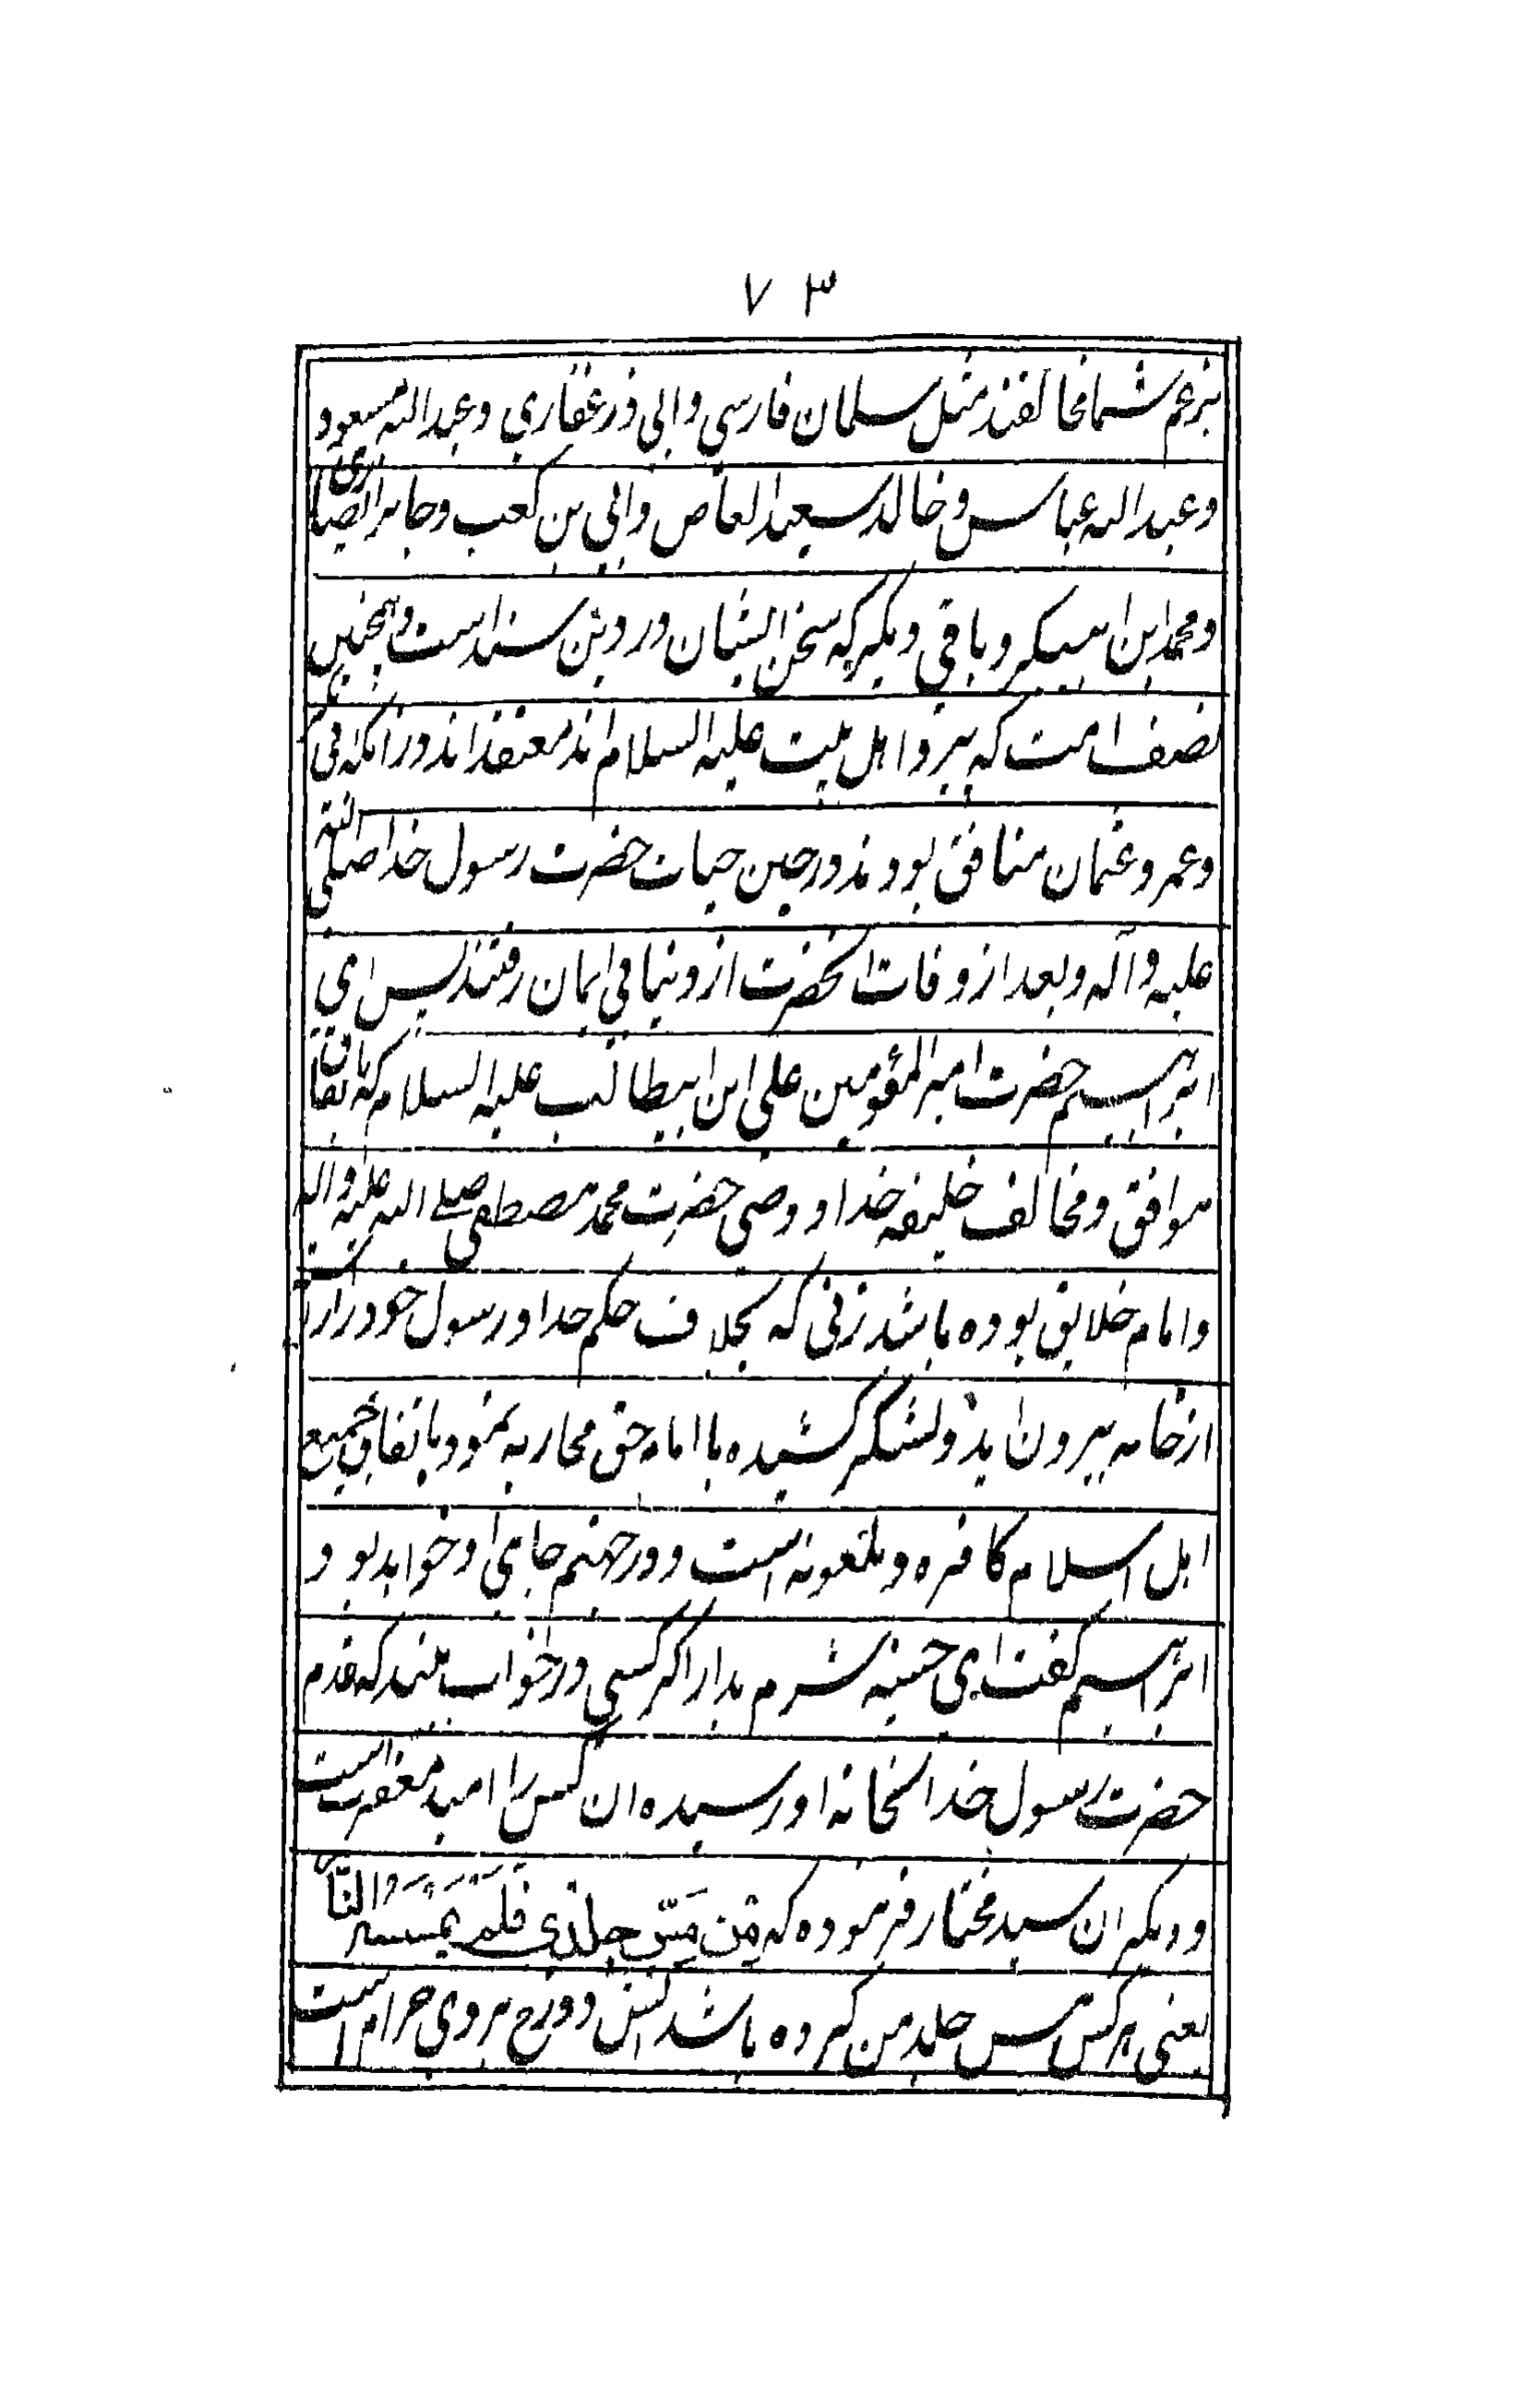 ۷۳
بزعم شما مخالفند مثل سلمان فارسی وابی ذر غفاری وعبدالله مسعود
وعبدالله عباس و خالد سعید العاص وابی بن کعب وجابر انصاری
ومحمد ابن ابیبکر وباقی دیگر که سخن ایشان در دین سند است وهمچنین
نصف امت که پیرو اهل بیت علیه السلام اند معتقد اند در آنکه ابی بکر
وعمر وعثمان منافق بودند در حین حیات حضرت رسول خدا صلی الله
علیه وآله وبعد از وفات آنحضرت از دنیا بی ایمان رفتند پس ای
ابراهیم حضرت امیرالمؤمنین علی ابن ابیطالب علیه السلام که باتفاق
موافق ومخالف خلیفه خدا و وصی حضرت محمد مصطفی صلی الله علیه واله
وامام خلایق بوده باشد زنی که بخلاف حکم خدا ورسول خود را
از خانه بیرون اید ولشکر کشیده با امام حق محاربه نمود باتفاق جمیع
اهل اسلام کافره و ملعونه است و در جهنم جای او خواهد بود
ابراهیم گفت ای حسنیه شرم بدار اگر کسی در خواب بیند که قدم
حضرت رسول خدا بخانه او رسیده ان کس را امید مغفرت است
و دیگر ان سید مختار فرموده که مَن مَسّ جلدی فلم یمسسه النّار
یعنی هر کس مس جلد من کرده باشد اتش دوزخ بروی حرام است